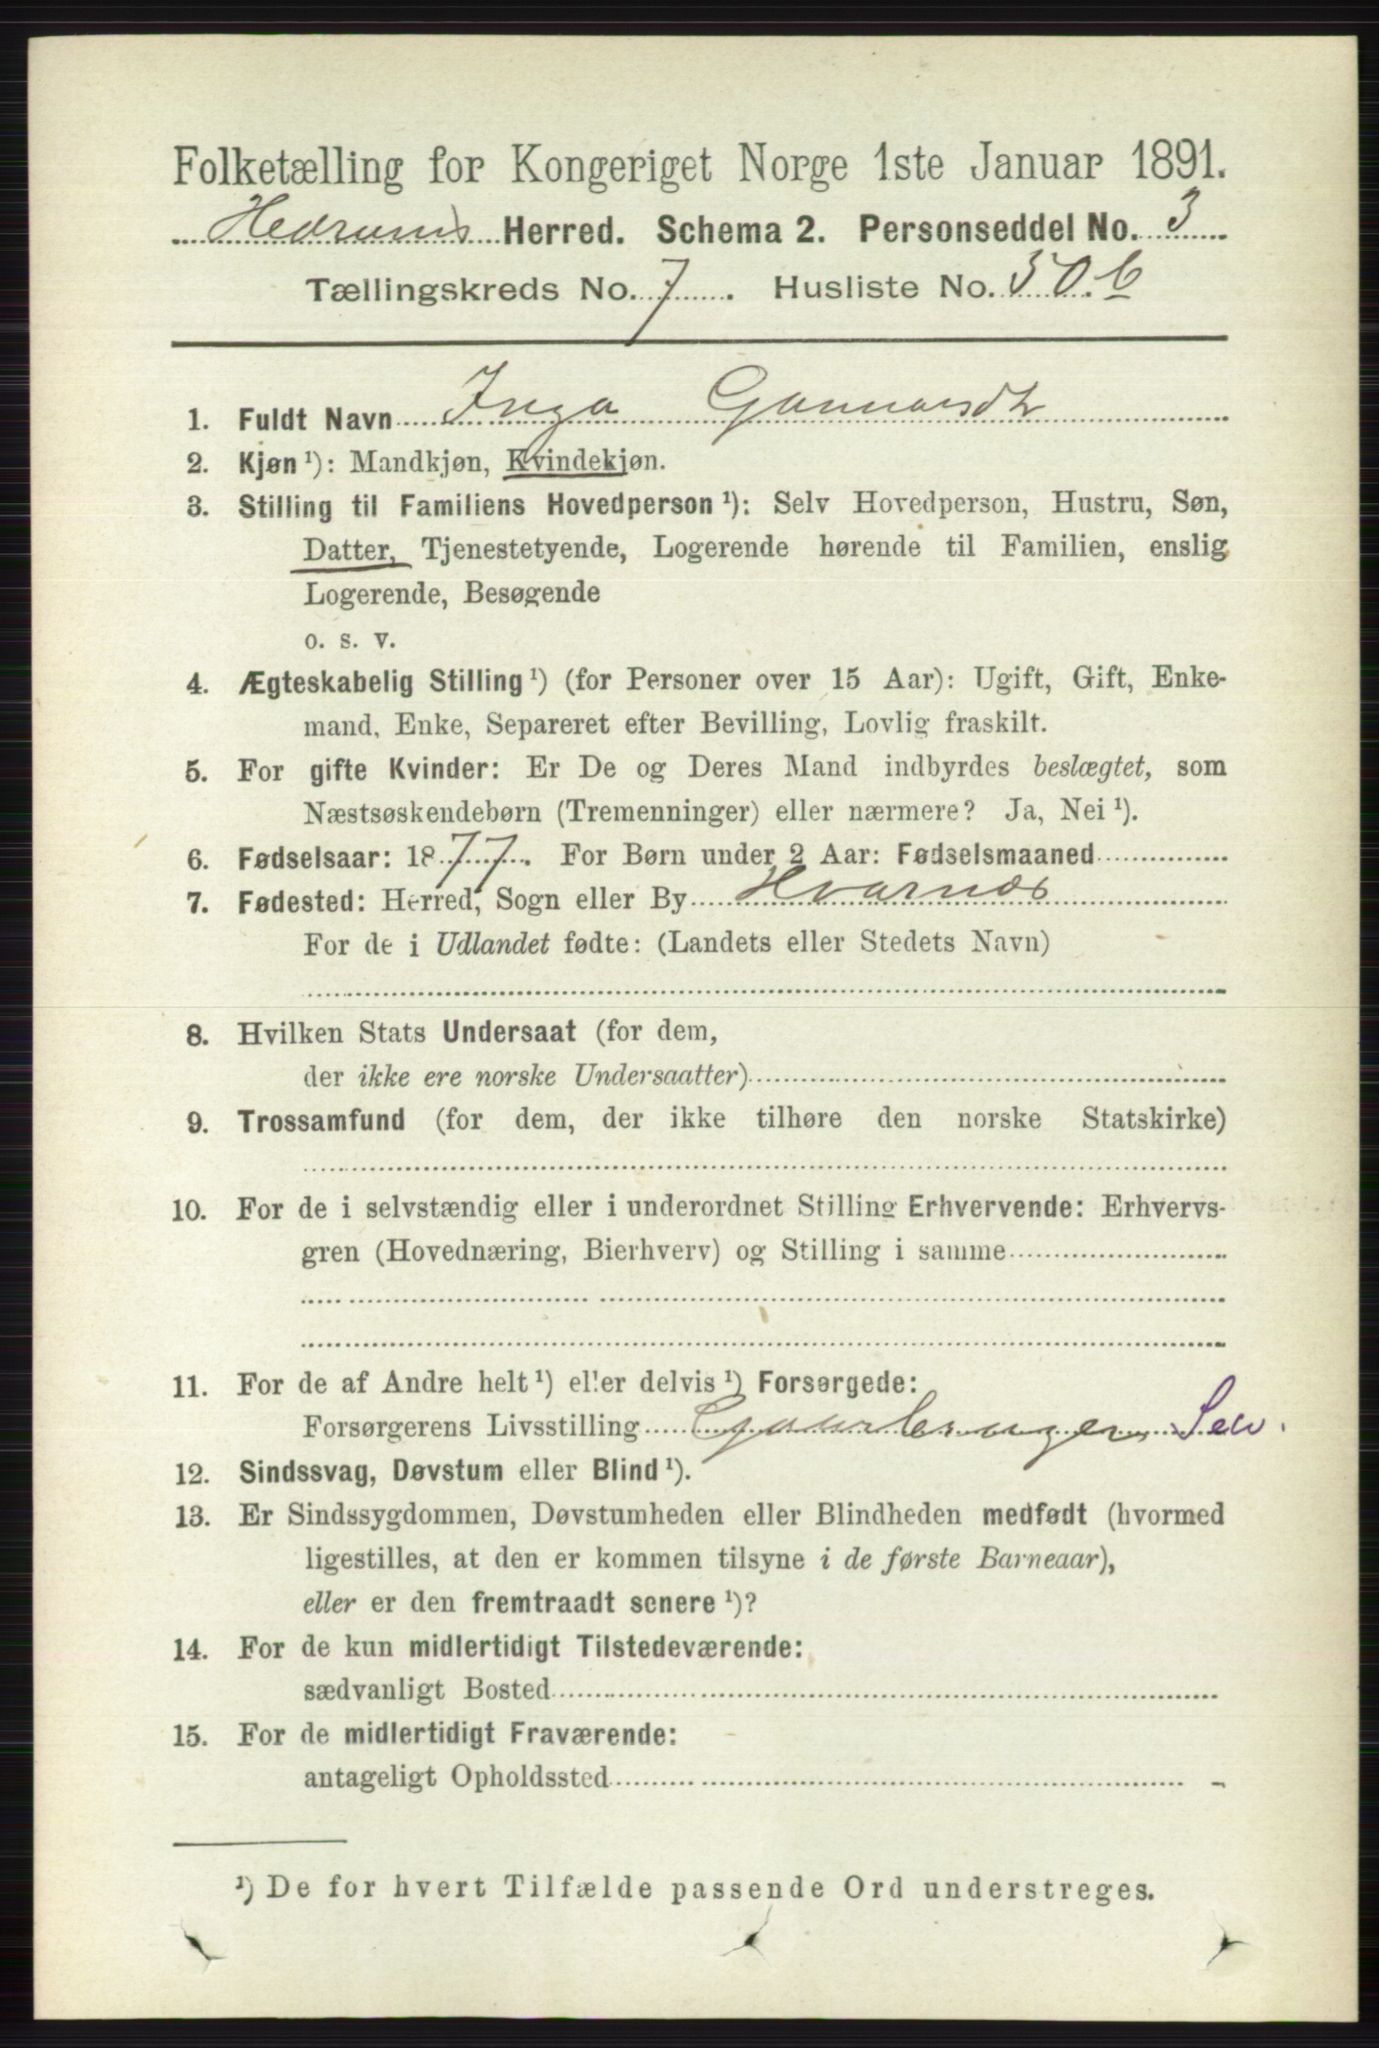 Folketælling for Kongeriget Norge 1ste Januar 1891.
Hedrums Herred. Schema 2. Personseddel No. 3
Tællingskreds No. 7. Husliste No. 50.b
1. Fuldt Navn Inga Gunnarsdt
2. Kjøn ¹): Mandkjøn, Kvindekjøn.
3. Stilling til Familiens Hovedperson ¹): Selv Hovedperson, Hustru, Søn,
Datter, Tjenestetyende, Logerende hørende til Familien, enslig
Logerende, Besøgende
o. s. v.
4. Ægteskabelig Stilling ¹) (for Personer over 15 Aar): Ugift, Gift, Enke-
mand, Enke, Separeret efter Bevilling, Lovlig fraskilt.
5. For gifte Kvinder: Er De og Deres Mand indbyrdes beslægtet, som
Næstsøskendebørn (Tremenninger) eller nærmere? Ja, Nei ¹).
6. Fødselsaar: 1877. For Børn under 2 Aar: Fødselsmaaned
7. Fødested: Herred, Sogn eller By Hvarnæs
For de i Udlandet fødte: (Landets eller Stedets Navn)
8. Hvilken Stats Undersaat (for dem,
der ikke ere norske Undersaatter)
9. Trossamfund (for dem, der ikke tilhøre den norske Statskirke)
10. For de i selvstændig eller i underordnet Stilling Erhvervende: Erhvervs-
gren (Hovednæring, Bierhverv) og Stilling i samme
11. For de af Andre helt ¹) eller delvis ¹) Forsørgede:
Forsørgerens Livsstilling Gaardbruger, Selv.
12. Sindssvag, Døvstum eller Blind ¹).
13. Er Sindssygdommen, Døvstumheden eller Blindheden medfødt (hvormed
ligestilles, at den er kommen tilsyne i de første Barneaar),
eller er den fremtraadt senere ¹)?
14. For de kun midlertidigt Tilstedeværende:
sædvanligt Bosted
15. For de midlertidigt Fraværende:
antageligt Opholdssted
¹) De for hvert Tilfælde passende Ord understreges.